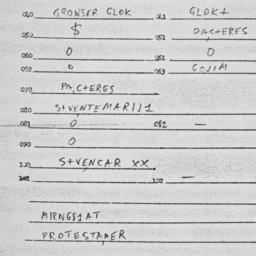 040 GRONSER GLOK 043 GLOK+
050 $ 051 PACTERES
060 0 061 0
052 0 063 GOJIM
070 PACTERES
080 S+VENTEMARIJ1
081 0 082 —
090 0
S+VENCAR XX
—
MIRNGS1AT
PROTESTANER